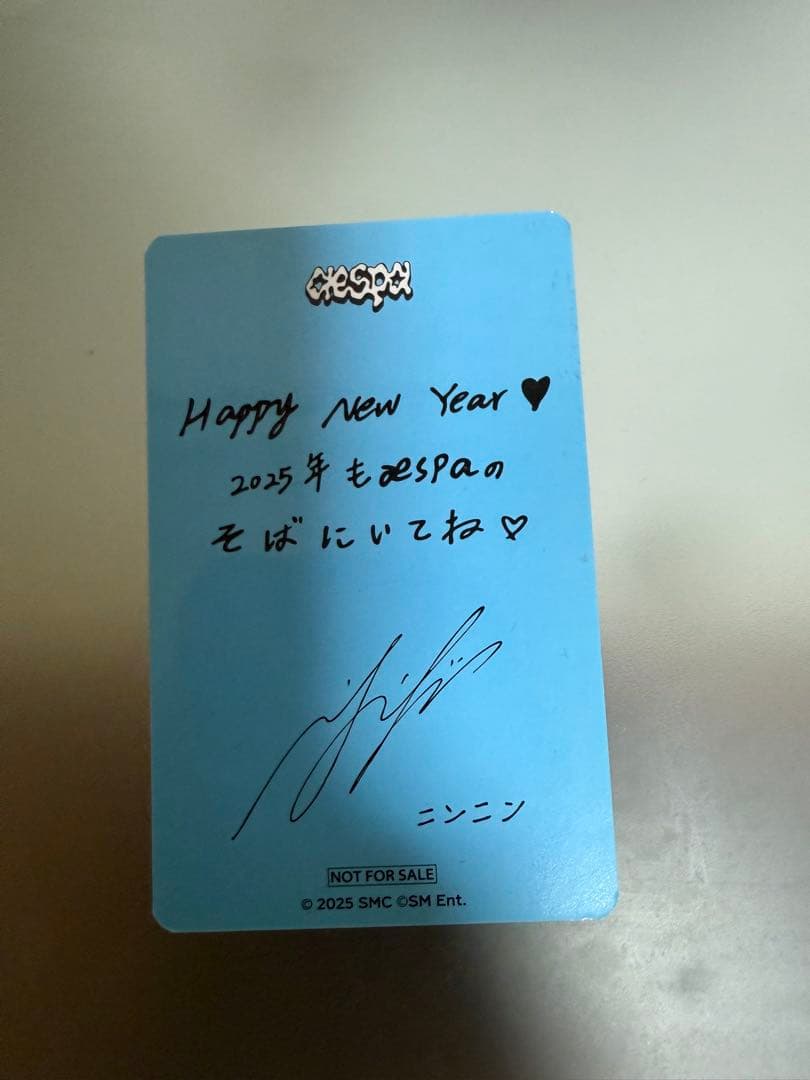 aespa
Happy New Year♥
2025年もaespaの
そばにいてね♡
ニンニン
NOT FOR SALE
© 2025 SMC ©SM Ent.